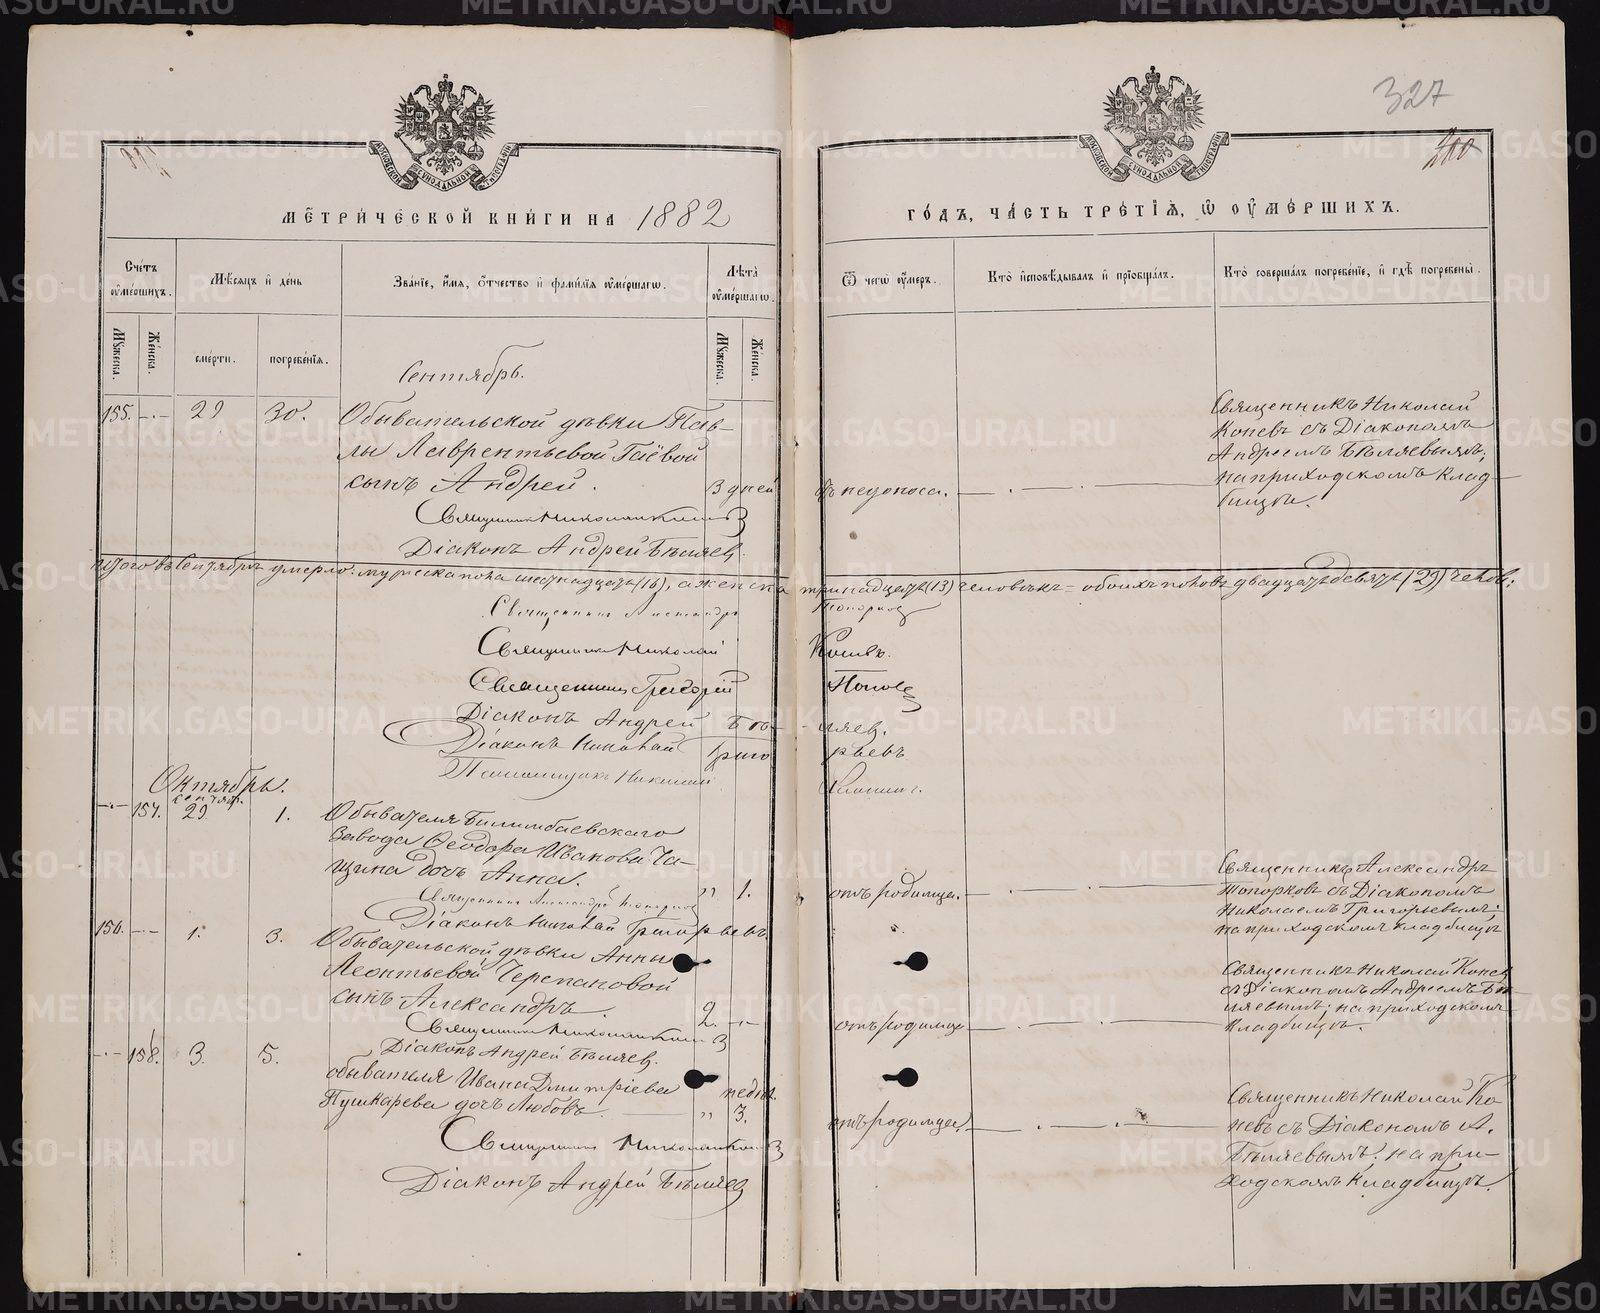 327
200
МЕТРИЧЕСКОЙ КНИГИ НА 1882
ГОДЪ, ЧАСТЬ ТРЕТІЯ, Ѿ ОУМЕРШИХЪ.
Счетъ оумершихъ.
Мѣсяцъ и день
Званіе, имя, отчество и фамилія оумершагѡ.
Лѣта оумершагѡ.
Ѿ чегѡ оумеръ.
Кто исповѣдывалъ и пріобщалъ.
Кто совершалъ погребеніе, и гдѣ погребены.
Мужеска.
Женска.
смерти.
погребенія.
Мужеска.
Женска.
Сентябрь.
155. 29 30. Обывательской дѣвки Пав-
лы Лаврентьевой Гаёвой
сынъ Андрей. 3 дней
отъ недоноса.
Священникъ Николай
Коневъ съ Діакономъ
Андреемъ Бѣляевымъ;
на приходскомъ клад-
бищѣ.
Священникъ Николай
Діаконъ Андрей Бѣляевъ.
Итого въ Сентябрѣ умерло: мужеска пола шестнадцать (16), а женска тринадцать (13) человѣкъ = обоихъ половъ двадцать девять (29) челов:
Священникъ Александръ Топорковъ
Священникъ Николай Коневъ.
Священникъ Григорій Поповъ
Діаконъ Андрей Бѣляев.
Діаконъ Николай Григорьевъ
Псаломщикъ Николай
Октябрь.
157. сентяб. 29 1. Обывателя Билимбаевскаго
завода Ѳеодора Иванова Ча-
щина дочь Анна. " 1.
отъ родимца.
Священникъ Александръ
Топорковъ съ Діакономъ
Николаемъ Григорьевымъ:
на приходскомъ кладбищѣ
Священникъ Александръ Топорковъ
Діаконъ Николай Григорьевъ.
156. 1. 3. Обывательской дѣвки Анны
Леонтьевой Черепановой
сынъ Александръ. 2.
отъ родимца
Священникъ Николай Конев
съ Діакономъ Андреемъ Бѣ-
ляевымъ; на приходскомъ
кладбищѣ.
Священникъ Николай
Діаконъ Андрей Бѣляев.
158. 3. 5. обывателя Ивана Дмитріева
Пушкарева дочь Любовь. " недѣл. 3.
отъ родимца.
Священникъ Николай Ко
невъ съ Діакономъ А.
Бѣляевымъ; на при-
ходскомъ кладбищѣ.
Священникъ Николай
Діаконъ Андрей Бѣляев
METRIKI.GASO-URAL.RU